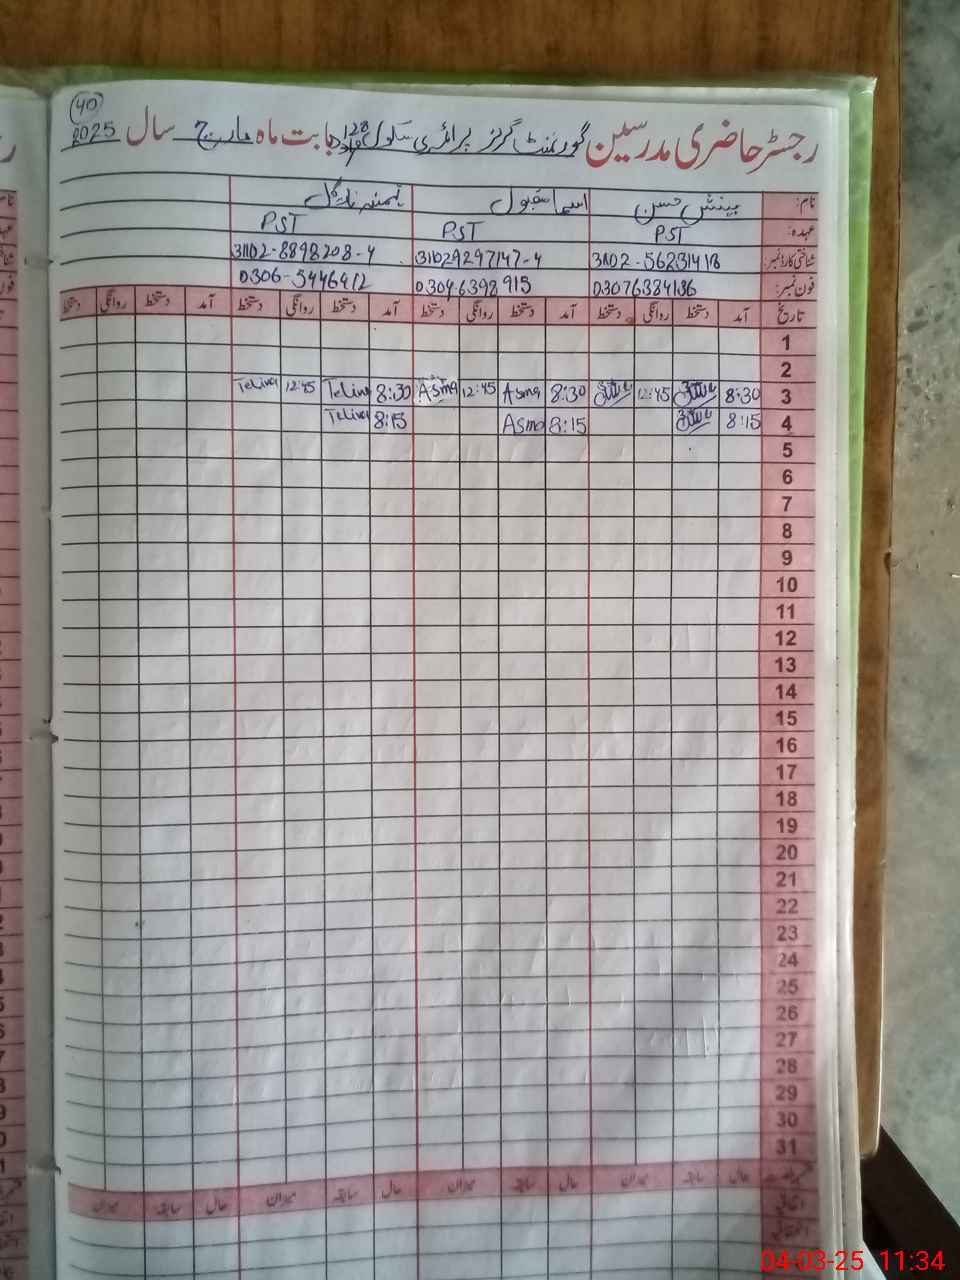 (40)
رجسٹر حاضری مدرسین گورنمنٹ گرلز پرائمری سکول 128 بابت ماہ مارچ سال 2025
نام: بینش حسن اسما مقبول
عہدہ: PST PST PST
شناختی کارڈ نمبر: 31029297147-4 31102-8898208-4
فون نمبر: 03076384136 03046398915 0306-5446412
تاریخ آمد دستخط روانگی دستخط آمد دستخط روانگی دستخط آمد دستخط روانگی دستخط آمد دستخط روانگی دستخط
1
2
3 8:30 12:45 8:30 Asma 12:45 Asma 8:30 12:45
4 8:15 8:15 Asma 8:15
5
6
7
8
9
10
11
12
13
14
15
16
17
18
19
20
21
22
23
24
25
26
27
28
29
30
31
حال سابقہ میزان حال سابقہ میزان حال سابقہ میزان حال سابقہ میزان
اتفاقی
04-03-25 11:34